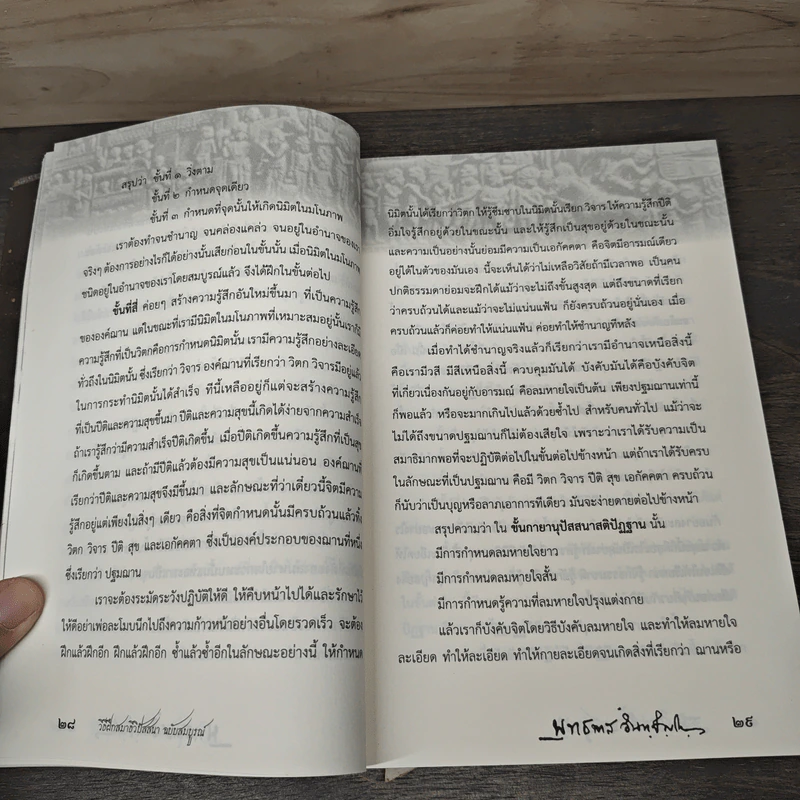 สรุปว่า ขั้นที่ ๑ วิ่งตาม
ขั้นที่ ๒ กำหนดจุดเดียว
ขั้นที่ ๓ กำหนดที่จุดนั้นให้เกิดนิมิตในมโนภาพ
เราต้องทำจนชำนาญ จนคล่องแคล่ว จนอยู่ในอำนาจของเรา
จริงๆ ต้องการอย่างไรก็ได้อย่างนั้นเสียก่อนในขั้นนั้น เมื่อนิมิตในมโนภาพ
ชนิดอยู่ในอำนาจของเราโดยสมบูรณ์แล้ว จึงได้ฝึกในขั้นต่อไป
ขั้นที่สี่ ค่อยๆ สร้างความรู้สึกอันใหม่ขึ้นมา ที่เป็นความรู้สึก
ขององค์ฌาน แต่ในขณะที่เรามีนิมิตในมโนภาพที่เหมาะสมอยู่นั้นเราก็มี
ความรู้สึกที่เป็นวิตกคือการกำหนดนิมิตนั้น เรามีความรู้สึกอย่างละเอียด
ทั่วถึงในนิมิตนั้น ซึ่งเรียกว่า วิจาร องค์ฌานที่เรียกว่า วิตก วิจารมีอยู่แล้ว
ในการกระทำนิมิตนั้นได้สำเร็จ ทีนี้เหลืออยู่ก็แต่จะสร้างความรู้สึก
ที่เป็นปีติและความสุขขึ้นมา ปีติและความสุขนี้เกิดได้ง่ายจากความสำเร็จ
ถ้าเรารู้สึกว่ามีความสำเร็จปีติเกิดขึ้น เมื่อปีติเกิดขึ้นความรู้สึกที่เป็นสุข
ก็เกิดขึ้นตาม และถ้ามีปีติแล้วต้องมีความสุขเป็นแน่นอน องค์ฌานที่
เรียกว่าปีติและความสุขจึงมีขึ้นมา และลักษณะที่ว่าเดี๋ยวนี้จิตมีความ
รู้สึกอยู่แต่เพียงในสิ่งๆ เดียว คือสิ่งที่จิตกำหนดนั้นมีครบถ้วนแล้วทั้ง
วิตก วิจาร ปีติ สุข และเอกัคคตา ซึ่งเป็นองค์ประกอบของฌานที่หนึ่ง
ซึ่งเรียกว่า ปฐมฌาน
เราจะต้องระมัดระวังปฏิบัติให้ดี ให้คืบหน้าไปได้และรักษาไว้
ให้ดีอย่าเพ่อละโมบนึกไปถึงความก้าวหน้าอย่างอื่นโดยรวดเร็ว จะต้อง
ฝึกแล้วฝึกอีก ฝึกแล้วฝึกอีก ซ้ำแล้วซ้ำอีกในลักษณะอย่างนี้ ให้กำหนด
๒๘ วิธีฝึกสมาธิวิปัสสนา ฉบับสมบูรณ์
นิมิตนั้นได้เรียกว่าวิตก ให้รู้ซึมซาบในนิมิตนั้นเรียก วิจาร ให้ความรู้สึกปีติ
อิ่มใจรู้สึกอยู่ด้วยในขณะนั้น และให้รู้สึกเป็นสุขอยู่ด้วยในขณะนั้น
และความเป็นอย่างนั้นย่อมมีความเป็นเอกัคคตา คือจิตมีอารมณ์เดียว
อยู่ได้ในตัวของมันเอง นี้จะเห็นได้ว่าไม่เหลือวิสัยถ้ามีเวลาพอ เป็นคน
ปกติธรรมดาย่อมจะฝึกได้แม้ว่าจะไม่ถึงขั้นสูงสุด แต่ถึงขนาดที่เรียก
ว่าครบถ้วนได้และแม้ว่าจะไม่แน่นแฟ้น ก็ยังครบถ้วนอยู่นั่นเอง เมื่อ
ครบถ้วนแล้วก็ค่อยทำให้แน่นแฟ้น ค่อยทำให้ชำนาญทีหลัง
เมื่อทำได้ชำนาญจริงแล้วก็เรียกว่าเรามีอำนาจเหนือสิ่งนี้
คือเรามีวสี มีสีเหนือสิ่งนี้ ควบคุมมันได้ บังคับมันได้คือบังคับจิต
ที่เกี่ยวเนื่องกันอยู่กับอารมณ์ คือลมหายใจเป็นต้น เพียงปฐมฌานเท่านี้
ก็พอแล้ว หรือจะมากเกินไปแล้วด้วยซ้ำไป สำหรับคนทั่วไป แม้ว่าจะ
ไม่ได้ถึงขนาดปฐมฌานก็ไม่ต้องเสียใจ เพราะว่าเราได้รับความเป็น
สมาธิมากพอที่จะปฏิบัติต่อไปในขั้นต่อไปข้างหน้า แต่ถ้าเราได้รับครบ
ในลักษณะที่เป็นปฐมฌาน คือมี วิตก วิจาร ปีติ สุข เอกัคคตา ครบถ้วน
ก็นับว่าเป็นบุญหรือลาภเอาการทีเดียว มันจะง่ายดายต่อไปข้างหน้า
สรุปความว่า ใน ขั้นกายานุปัสสนาสติปัฏฐาน นั้น
มีการกำหนดลมหายใจยาว
มีการกำหนดลมหายใจสั้น
มีการกำหนดรู้ความที่ลมหายใจปรุงแต่งกาย
แล้วเราก็บังคับจิตโดยวิธีบังคับลมหายใจ และทำให้ลมหายใจ
ละเอียด ทำให้ละเอียด ทำให้กายละเอียดจนเกิดสิ่งที่เรียกว่า ฌานหรือ
พุทธทาส อินฺทปญฺโญ ๒๙